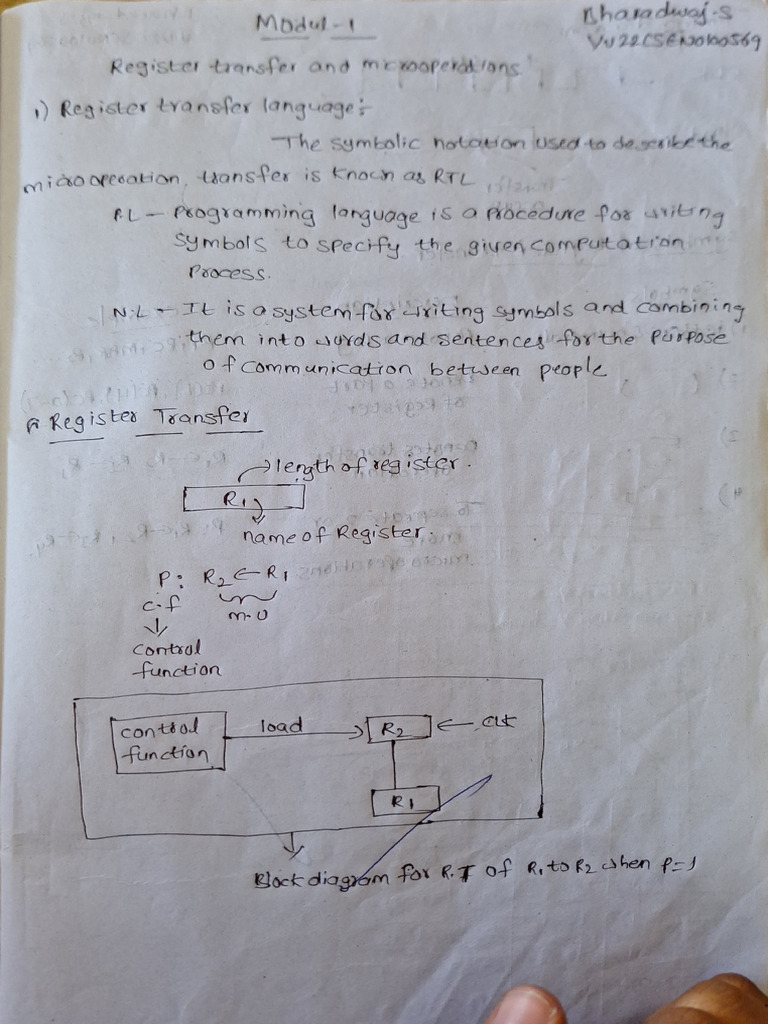 Modul-1
Bharadwaj.S
VU22CSEN0100569
Register transfer and microoperations
1) Register transfer language:-
The symbolic notation used to describe the
microoperation, transfer is known as RTL
P.L - Programming language is a procedure for writing
symbols to specify the given computation
process.
N.L - It is a system for writing symbols and combining
them into words and sentences for the purpose
of communication between people
Register Transfer
length of register.
R1
name of Register.
P: R2 ← R1
c.f
m.o
control
function
control
function
load
R2
← clk
R1
Block diagram for R.T of R1 to R2 when p=1